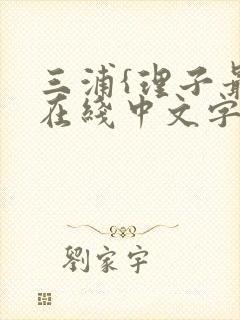 三浦{理子最
在线中文字
劉家宇